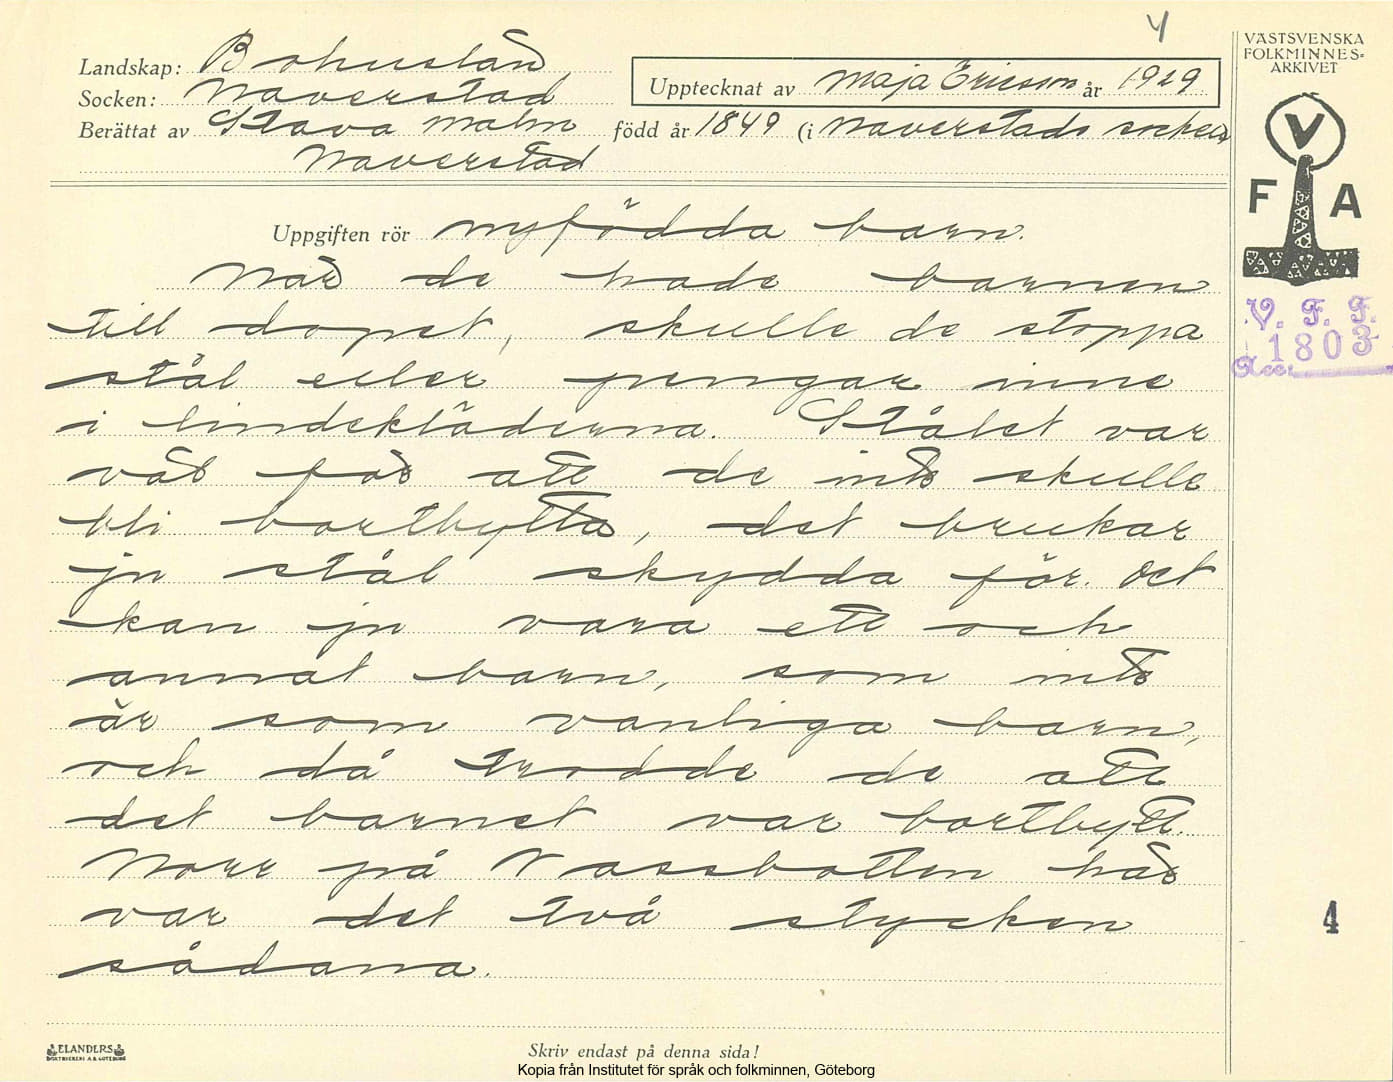 4
VÄSTSVENSKA
FOLKMINNES=
ARKIVET
Landskap: Bohuslän
Socken: Naverstad
Upptecknat av Maja Ericson år 1929
Berättat av Stava Malm född år 1849 (i Naverstads socken
Naverstad
V
F A
Uppgiften rör nyfödda barn.
När de hade barnen
till dopet, skulle de stoppa
stål eller pengar inne
i lindekläderna. Stålet var
väl för att de inte skulle
bli bortbytta, det brukar
ju stål skydda för. Det
kan ju vara ett och
annat barn, som inte
är som vanliga barn,
och då trodde de att
det barnet var bortbytt.
Norr på Vassbotten här
var det två stycken
sådana.
V. F. F.
1803
Acc:
4
ELANDERS
BOKTRYCKERI A.B. GÖTEBORG
Skriv endast på denna sida!
Kopia från Institutet för språk och folkminnen, Göteborg